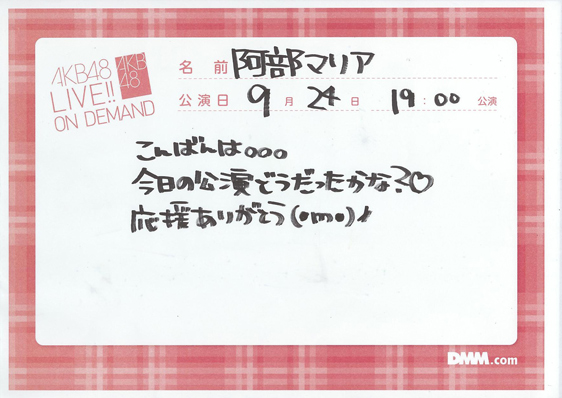 AKB48
LIVE!!
ON DEMAND
AKB
48
名前 阿部マリア
公演日 9月24日 19:00 公演
こんばんは。。。
今日の公演どうだったかな?♡
応援ありがとう(・m・)♪
DMM.com